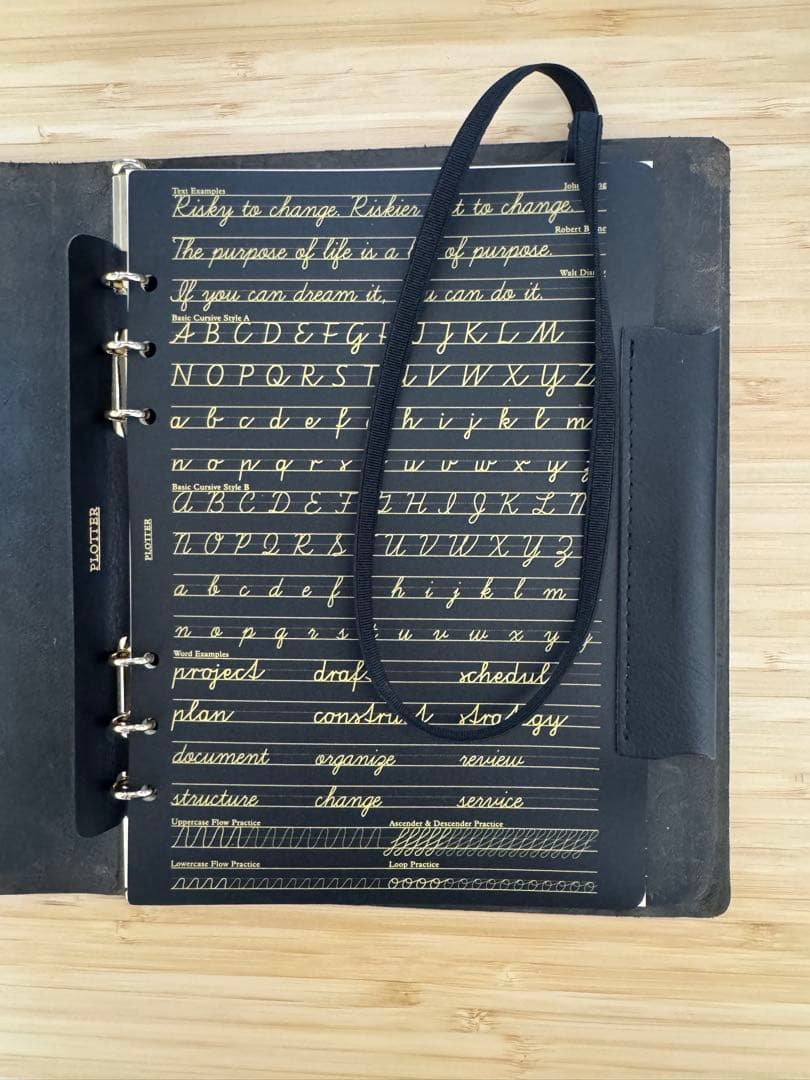 PLOTTER
PLOTTER
Text Examples
Risky to change. Riskier to change.
Robert
The purpose of life is a of purpose.
Walt
If you can dream it, can do it.
Basic Cursive Style A
A B C D E F G I J K L M
N O P Q R S T U V W X Y Z
a b c d e f h i j k l m
n o p q r s u v w x y
Basic Cursive Style B
A B C D E F G H I J K L M
N O P Q R S U V W X Y Z
a b c d e f h i j k l m
n o p q r s u v w x y
Word Examples
project draft schedule
plan construct strategy
document organize review
structure change service
Uppercase Flow Practice Ascender & Descender Practice
Lowercase Flow Practice Loop Practice